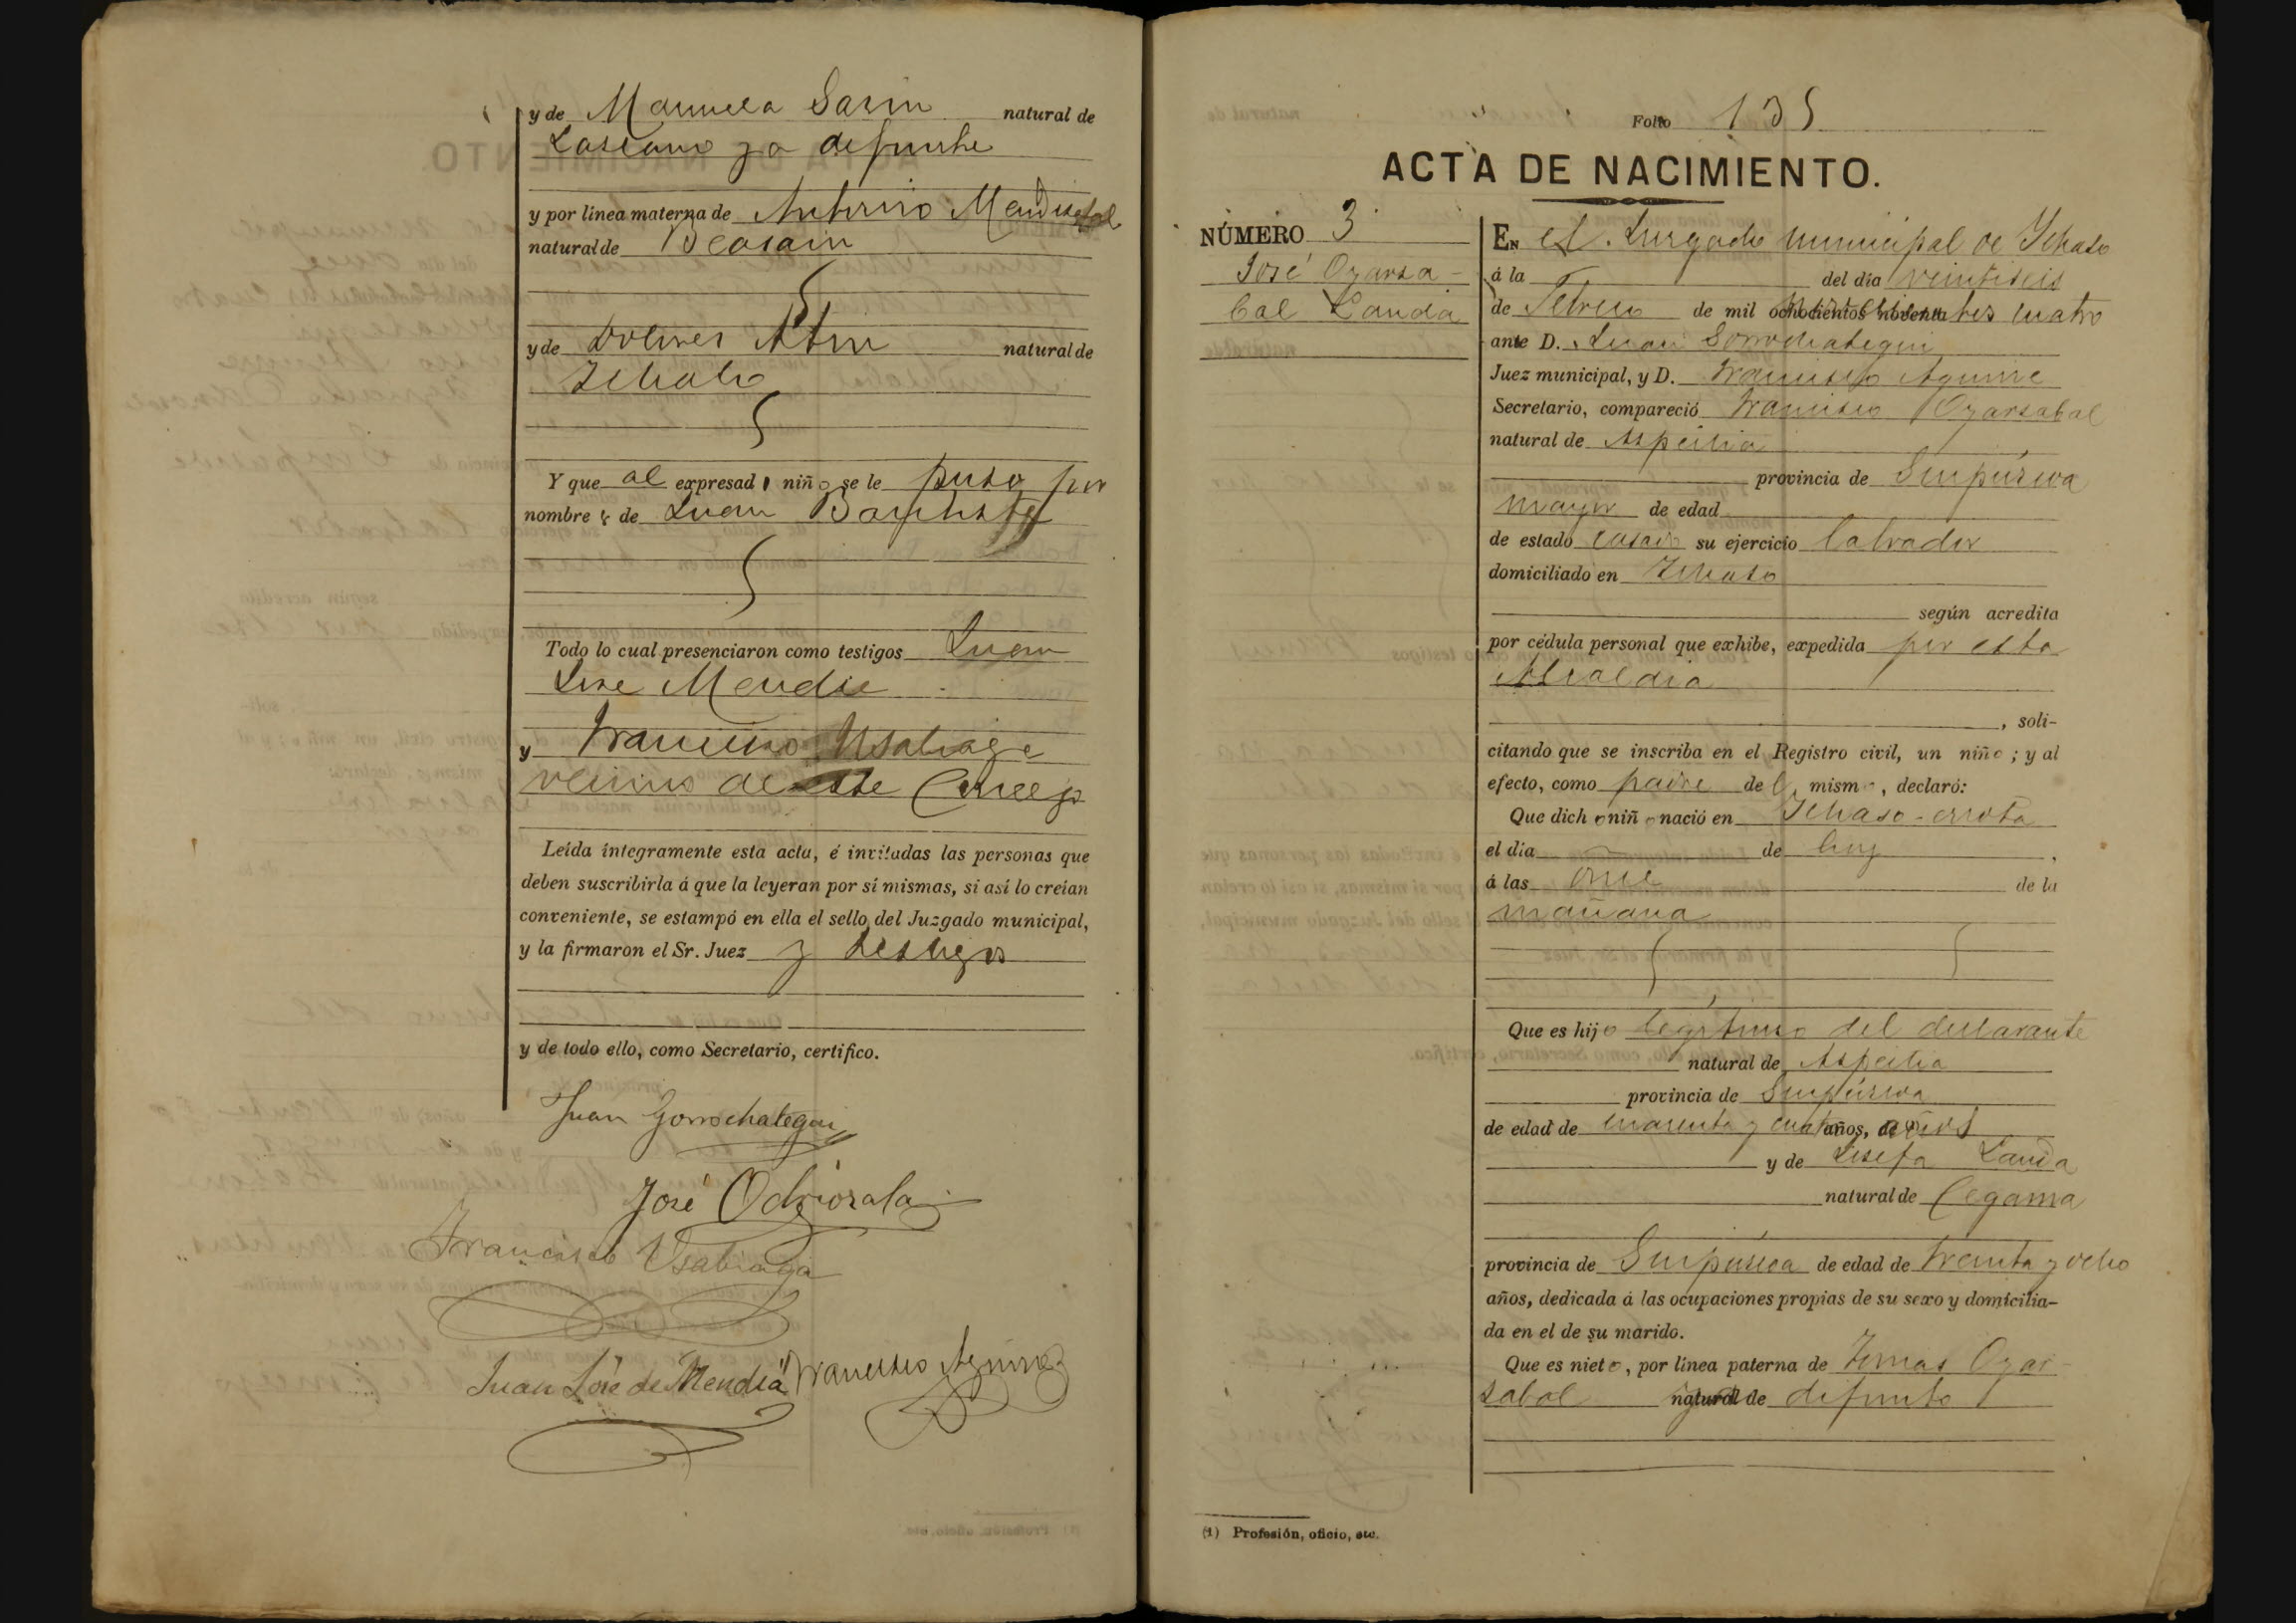 y de Manuela Sarin natural de
Lascano ya defunta
y por línea materna de Antonio Mendizabal
natural de Beasain
y de Dolores natural de
Ichaso
Y que al expresado niño se le puso por
nombre de Juan Bautista
Todo lo cual presenciaron como testigos Juan
Jose Mendia
y Francisco Usabiaga
vecinos de este Concejo
Leída íntegramente esta acta, é invitadas las personas que
deben suscribirla á que la leyeran por sí mismas, si así lo creían
conveniente, se estampó en ella el sello del Juzgado municipal,
y la firmaron el Sr. Juez y testigos
y de todo ello, como Secretario, certifico.
Juan Gorrochategui
José Odriozola
Francisco Usabiaga
Juan José de Mendia Francisco Aguirre
Folio 135
ACTA DE NACIMIENTO.
NÚMERO 3
José Oyarza-
bal Lauda
En el Juzgado municipal de Ichaso
á la del día veintiseis
de Febrero de mil ochocientos noventa cuatro
ante D. Juan Gorrochategui
Juez municipal, y D. Francisco Aguirre
Secretario, compareció Francisco Oyarzabal
natural de Aspeitia
provincia de Guipúzcoa
mayor de edad
de estado casado su ejercicio labrador
domiciliado en Ichaso
según acredita
por cédula personal que exhibe, expedida por esta
Alcaldia
, soli-
citando que se inscriba en el Registro civil, un niño; y al
efecto, como padre del mismo, declaró:
Que dicho niño nació en Ichaso-errota
el día de hoy,
á las once de la
mañana
Que es hijo legítimo del declarante
natural de Aspeitia
provincia de Guipúzcoa
de edad de cuarenta y cuatro años,
y de Josefa Lauda
natural de Cegama
provincia de Guipúzcoa de edad de treinta y ocho
años, dedicada á las ocupaciones propias de su sexo y domicilia-
da en el de su marido.
Que es nieto, por línea paterna de Tomas Oyar-
zabal natural de defunto
(1) Profesión, oficio, etc.